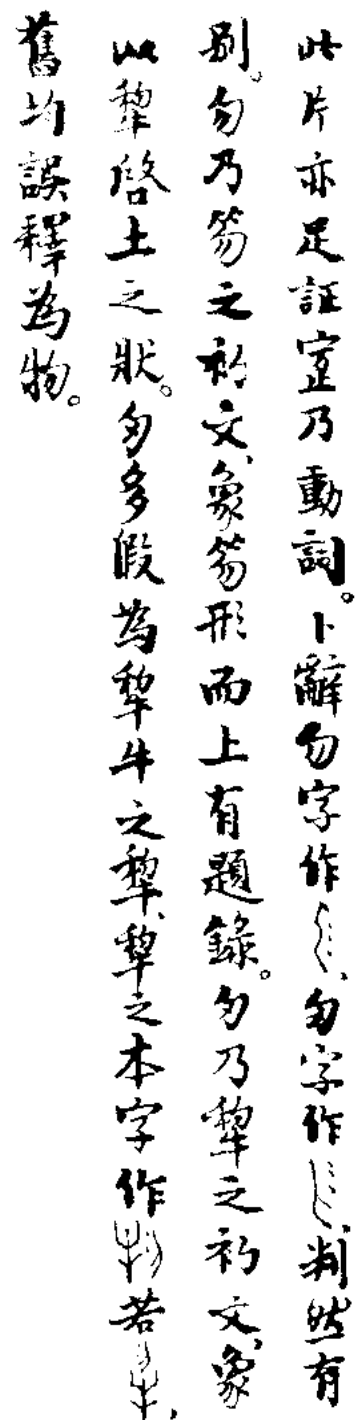 此片亦足証宔乃動詞。卜辭勿字作、匆字作,判然有
别。勿乃笏之初文、象笏形而上有題錄。匆乃犂之初文、象
以犂啓土之狀。匆多假為犂牛之犂、犂之本字作若,
舊均誤釋為物。